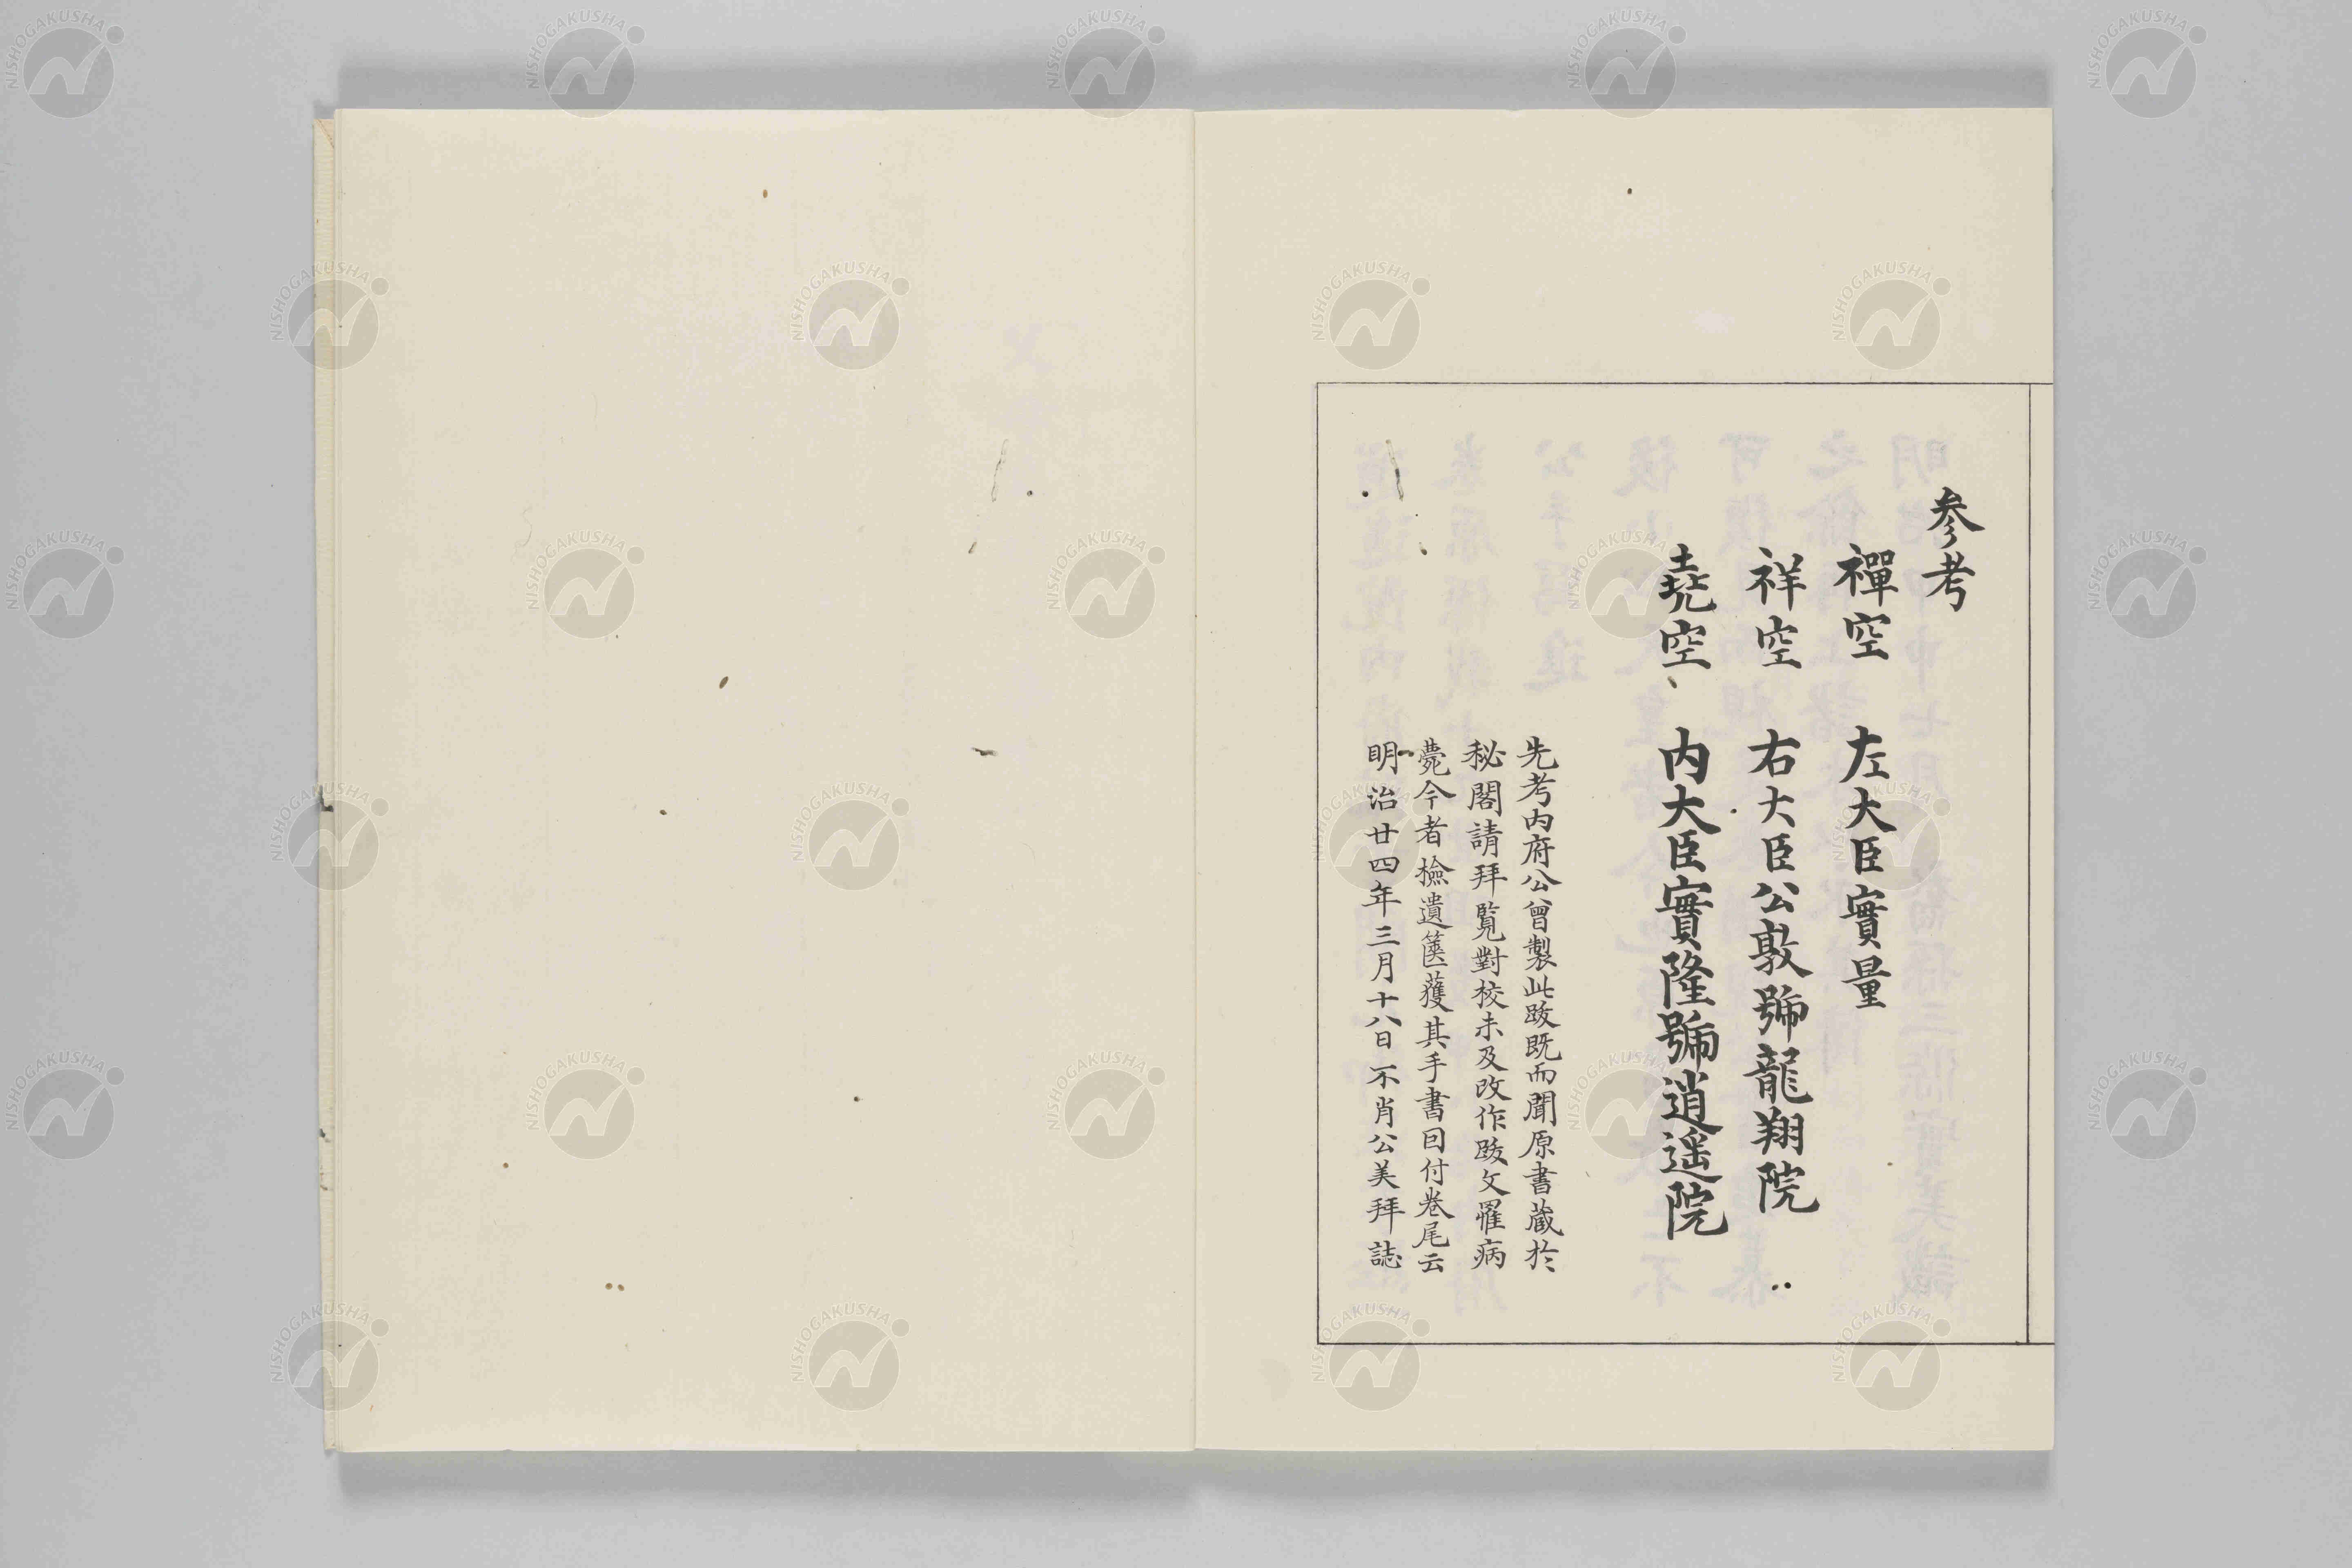 参考
禪空　左大臣實量
祥空　右大臣公敦號龍翔院
堯空　内大臣實隆號逍遥院
先考内府公曾製此跋既而聞原書藏於
秘閣請拜覧對校未及改作跋文罹病
薨今者檢遺篋獲其手書曰付卷尾云
明治廿四年三月十八日不肖公美拜誌